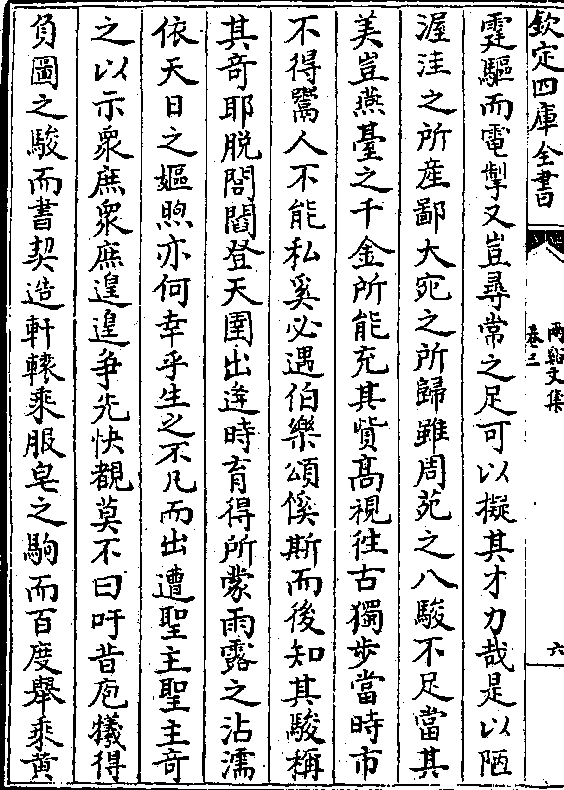 欽定四庫全書
兩谿文集
卷三
六
霆驅而電掣又豈尋常之足可以擬其才力哉是以陋
渥洼之所産鄙大宛之所歸雖周苑之八駿不足當其
美豈燕臺之千金所能充其貲髙視徃古獨步當時市
不得鬻人不能私奚必遇伯樂頌傒斯而後知其駿稱
其竒耶脱閭閻登天圉出逄時育得所蒙雨露之沾濡
依天日之嫗煦亦何幸乎生之不凡而出遭聖主聖主竒
之以示衆庶衆庶遑遑争先快覩莫不曰吁昔庖犧得
負圖之駿而書契造軒轅乘服皂之駒而百度舉乘黄